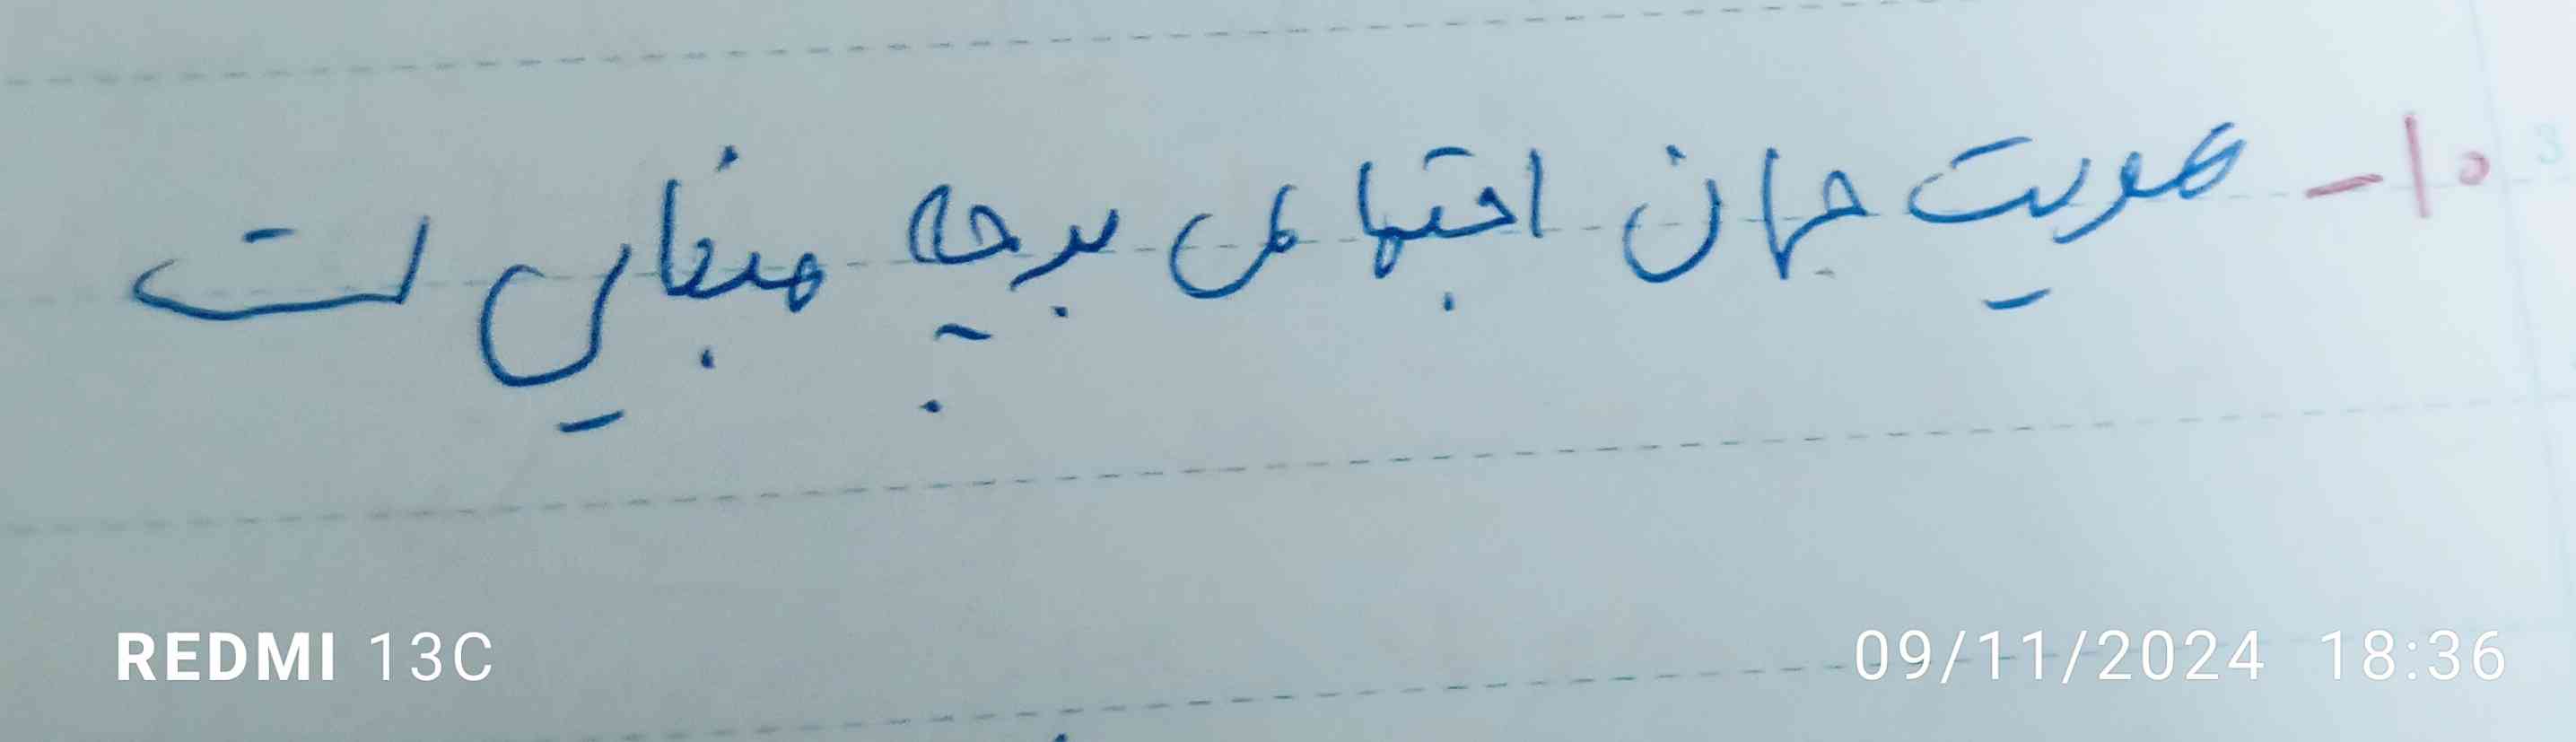 ۱۰- هویت جهان اجتماعی برچه مبنایی است
REDMI 13C
09/11/2024 18:36